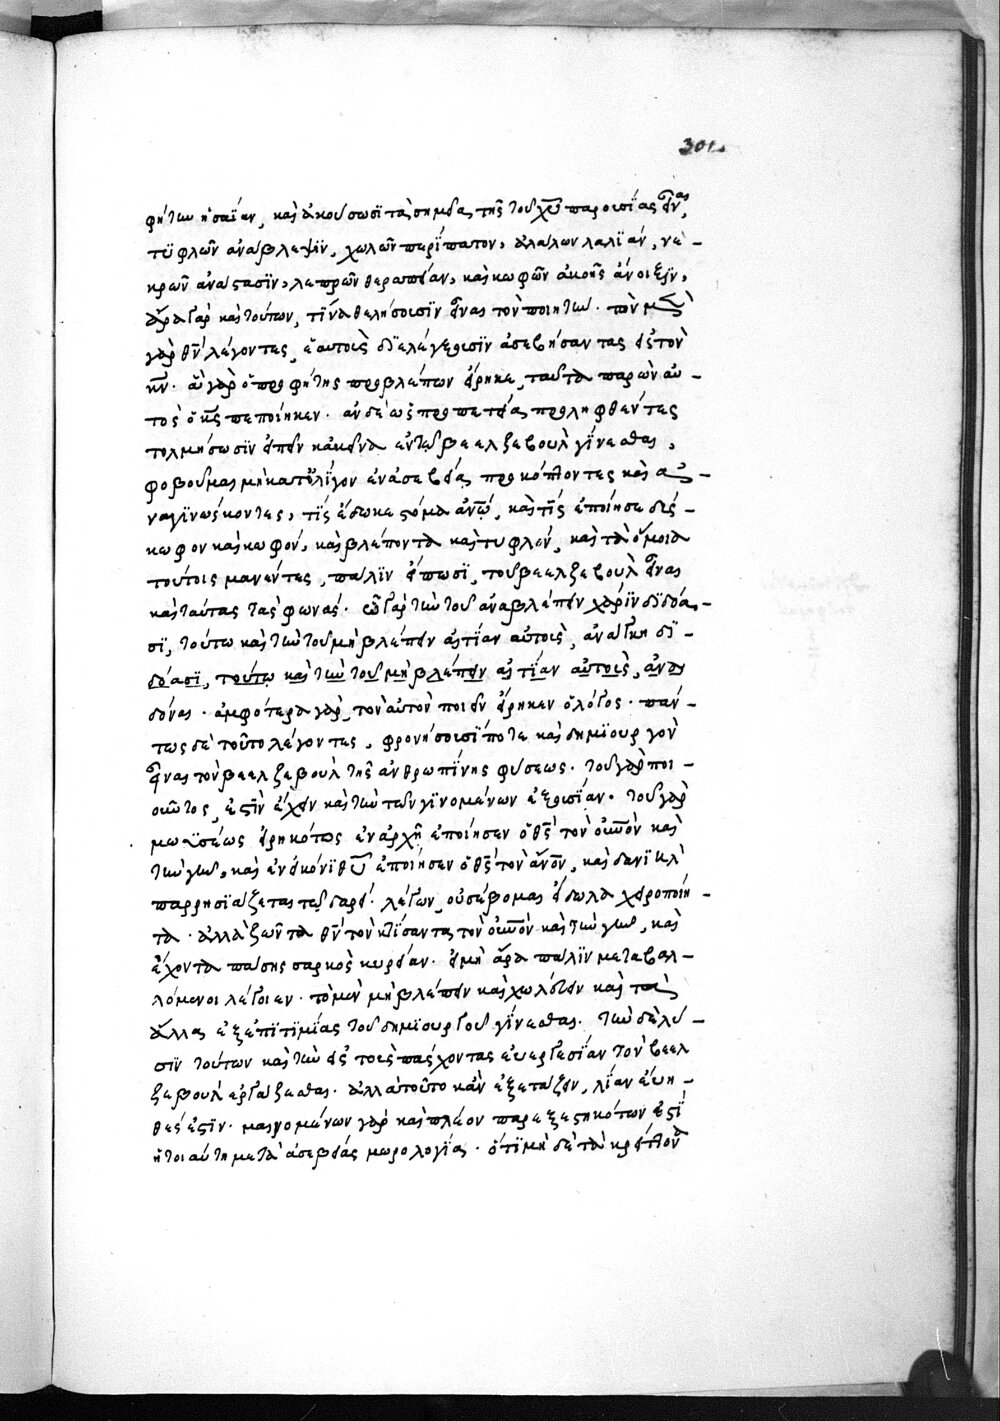 301
φήτων ἠσαΐαν, καὶ ἀκούσωσι τὰ σημεῖα τῆς τοῦ χ̅υ̅ παρουσίας εἶναι,
τυφλῶν ἀναβλεψϊν, χωλῶν περίπατον, ἀλάλων λαλίαν, νε-
κρῶν ἀνάστασϊν, λεπρῶν θεραπείαν, καὶ κωφῶν ἀκοῆς ἄνοιξϊν,
ἆρα γὰρ καὶ τούτων, τίνα θελήσοισϊν εἶναι τὸν ποιητὴν. τὸν
γὰρ θ̅ν̅ λέγοντες, ἑαυτοὺς διελέγξοισϊν ἀσεβήσαντας εἰς τὸν
κ̅ν̅. ἃ γὰρ ὁ προφήτης προβλέπων εἴρηκε, ταῦτα παρὼν αὐ-
τὸς ὁ κ̅ς̅ πεποίηκεν. ἂν δὲ ὡς προπετείᾳ προληφθέντες
τολμήσωσϊν εἰπεῖν κἀκεῖνα ἐν τῷ βεελζεβοὺλ γίνεσθαι,
φοβοῦμαι μὴ κατ' ὀλίγον ἐν ἀσεβείᾳ προκόπτοντες καὶ ἀ-
ναγϊνώσκοντες, τίς ἔδωκε στόμα ἀν̅ω̅, καὶ τίς ἐποίησε δύς-
κωφον καὶ κωφὸν, καὶ βλέποντα καὶ τυφλὸν, καὶ τὰ ὅμοια
τούτοις μανέντες, πάλϊν εἴπωσϊ, τοῦ βεελζεβοὺλ εἶναι
καὶ ταύτας τὰς φωνάς. ᾧ γὰρ τὴν τοῦ ἀναβλέπειν χάρϊν δϊδόα-
σϊ, τούτω καὶ τὴν τοῦ μὴ βλέπειν αἰτίαν αὐτοὺς, ἀνάγκη δϊ-
δόασϊ, τούτω καὶ τὴν τοῦ μὴ βλέπειν αἰτίαν αὐτοὺς, ἀνα
δόναι. ἀμφότερα γὰρ, τὸν αὐτὸν ποιεῖν εἴρηκεν ὁ λόγος. πάν-
τως δὲ τοῦτο λέγοντες, φρονήσοισί ποτε καὶ δημϊουργὸν
εἶναι τὸν βεελζεβοὺλ τῆς ἀνθρωπίνης φύσεως. τοῦ γὰρ ποι-
οῦντος, ἐστϊν ἔχειν καὶ τὴν τῶν γϊνομένων ἐξουσίαν. τοῦ γὰρ
μωϋσέως εἰρηκότος ἐν ἀρχῇ ἐποίησεν ὁ θ̅ς̅ τὸν οὐ̅ν̅ο̅ν̅ καὶ
τὴν γῆν, καὶ ἐν εἰκόνϊ θ̅υ̅ ἐποίησεν ὁ θ̅ς̅ τὸν ἄν̅ο̅ν̅, καὶ δανϊὴλ
παρρησϊάζεται τῷ δαρεί. λέγων, οὐ σέβομαι εἴδωλα χειροποίη-
τα. ἀλλὰ ζῶντα θ̅ν̅ τὸν κτίσαντα τὸν οὐ̅ν̅ο̅ν̅ καὶ τὴν γῆν, καὶ
ἔχοντα πάσης σαρκὸς κυρείαν. εἰ μὴ ἄρα πάλϊν μεταβαλ-
λόμενοι λέγοιεν. τὸ μὲν μὴ βλέπειν καὶ χωλεύειν καὶ τὰ
ἄλλα ἐξ ἐπϊτϊμίας τοῦ δημϊουργοῦ γίνεσθαι. τὴν δὲ λύ-
σϊν τούτων καὶ τὴν εἰς τοὺς πάσχοντας εὐεργεσίαν τὸν βεελ
ζεβοὺλ ἐργάζεσθαι. ἀλλὰ τοῦτο κἂν ἐξετάζειν, λίαν εὐη-
θές ἐστϊν. μαινομένων γὰρ καὶ πλέον παρεξεστηκότων ἐστϊ
ἡ τοιαύτη μετὰ ἀσεβείας μωρολογία. ὅτϊ μὴ δὲ τὰ κρείττονα